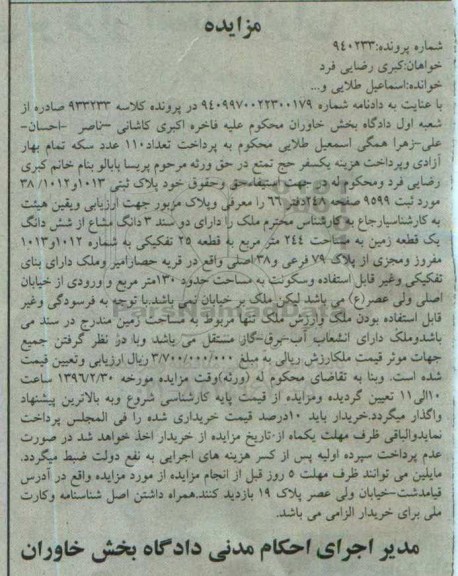 مزایده
شماره پرونده:۹۴۰۲۳۳
خواهان:کبری رضایی فرد
خوانده:اسماعیل طلایی و...
با عنایت به دادنامه شماره ۹۴۰۹۹۷۰۰۲۲۳۰۰۱۷۹ در پرونده کلاسه ۹۳۳۲۳۳ صادره از
شعبه اول دادگاه بخش خاوران محکوم علیه فاخره اکبری کاشانی –ناصر –احسان–
علی–زهرا همگی اسمعیل طلایی محکوم به پرداخت تعداد۱۱۰ عدد سکه تمام بهار
آزادی وپرداخت هزینه یکسفر حج تمتع در حق ورثه مرحوم پریسا بابالو بنام خانم کبری
رضایی فرد ومحکوم له در جهت استیفاءحق وحقوق خود پلاک ثبتی ۱۰۱۳و۱۰۱۲/ ۳۸
مورد ثبت ۹۵۹۹ صفحه ۲۴۸دفتر ۶۶ را معرفی وپلاک مزبور جهت ارزیابی ویقین هیئت
به کارشناسیارجاع به کارشناس محترم ملک را دارای دو سند ۳ دانگ مشاع از شش دانگ
یک قطعه زمین به مساحت ۲۴۴ متر مربع به قطعه ۲۵ تفکیکی به شماره ۱۰۱۲و۱۰۱۳
مفروز ومجزی از پلاک ۷۹ فرعی و۳۸اصلی واقع در قریه حصارامیر وملک دارای بنای
تفکیکی وغیر قابل استفاده وسکونت به مساحت حدود ۱۳۰متر مربع و ورودی از خیابان
اصلی ولی عصر(ع) می باشد لیکن ملک بر خیابان نمی باشد.با توجه به فرسودگی وغیر
قابل استفاده بودن ملک وارزش ملک تنها مربوط به مساحت زمین مندرج در سند می
باشدوملک دارای انشعاب آب–برق–گاز مستقل می باشد وبا در نظر گرفتن جمیع
جهات موثر قیمت ملکارزش ریالی به مبلغ ۳/۷۰۰/۰۰۰/۰۰۰ریال ارزیابی وتعیین قیمت
شده است. وبنا به تقاضای محکوم له (ورثه)وقت مزایده مورخه ۱۳۹۶/۲/۳۰ ساعت
۱۰الی۱۱ تعیین گردیده ومزایده از قیمت پایه کارشناسی شروع وبه بالاترین پیشنهاد
واگذار میگردد.خریدار باید ۱۰درصد قیمت خریداری شده را فی المجلس پرداخت
نمایدوالباقی ظرف مهلت یکماه از تاریخ مزایده از خریدار اخذ خواهد شد در صورت
عدم پرداخت سپرده اولیه پس از کسر هزینه های اجرایی به نفع دولت ضبط میگردد.
مایلین می توانند ظرف مهلت ۵ روز قبل از انجام مزایده از مورد مزایده واقع در آدرس
قیامدشت–خیابان ولی عصر پلاک ۱۹ بازدید کنند.همراه داشتن اصل شناسنامه وکارت
ملی برای خریدار الزامی می باشد.
مدیر اجرای احکام مدنی دادگاه بخش خاوران